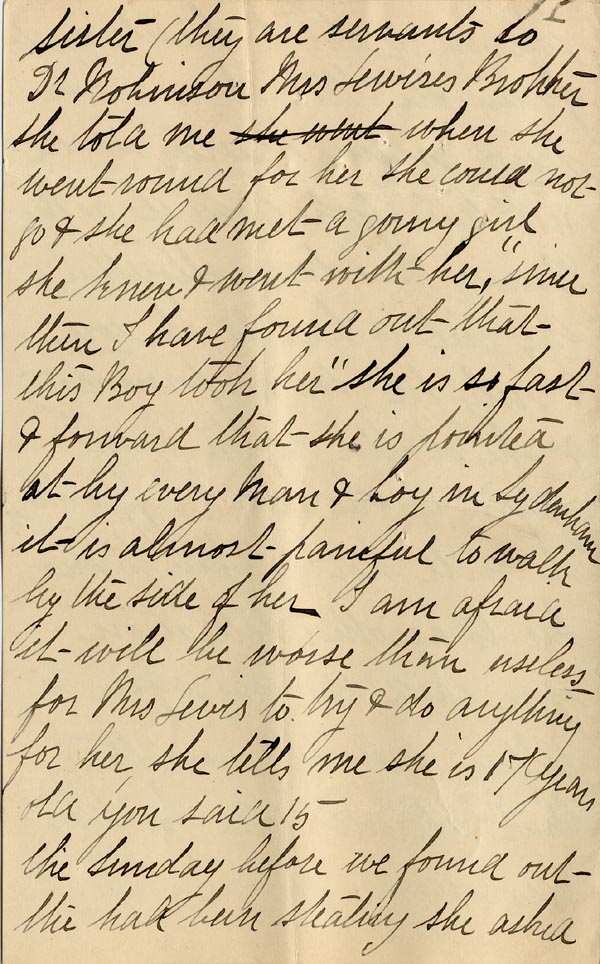 sister (they are servants to
Dr Robinson Mrs Lewises Brother
she told me she went when she
went round for her she could not
go & she had met a young girl
she knew & went with her, "since
then I have found out that
this Boy took her" she is so fast
& forward that she is pointed
at by every man & boy in Sydenham
it is almost painful to walk
by the side of her I am afraid
it will be worse than useless
for Mrs Lewis to try & do anything
for her, she tells me she is 17 years
old you said 15
the Sunday before we found out
the had been stealing she asked